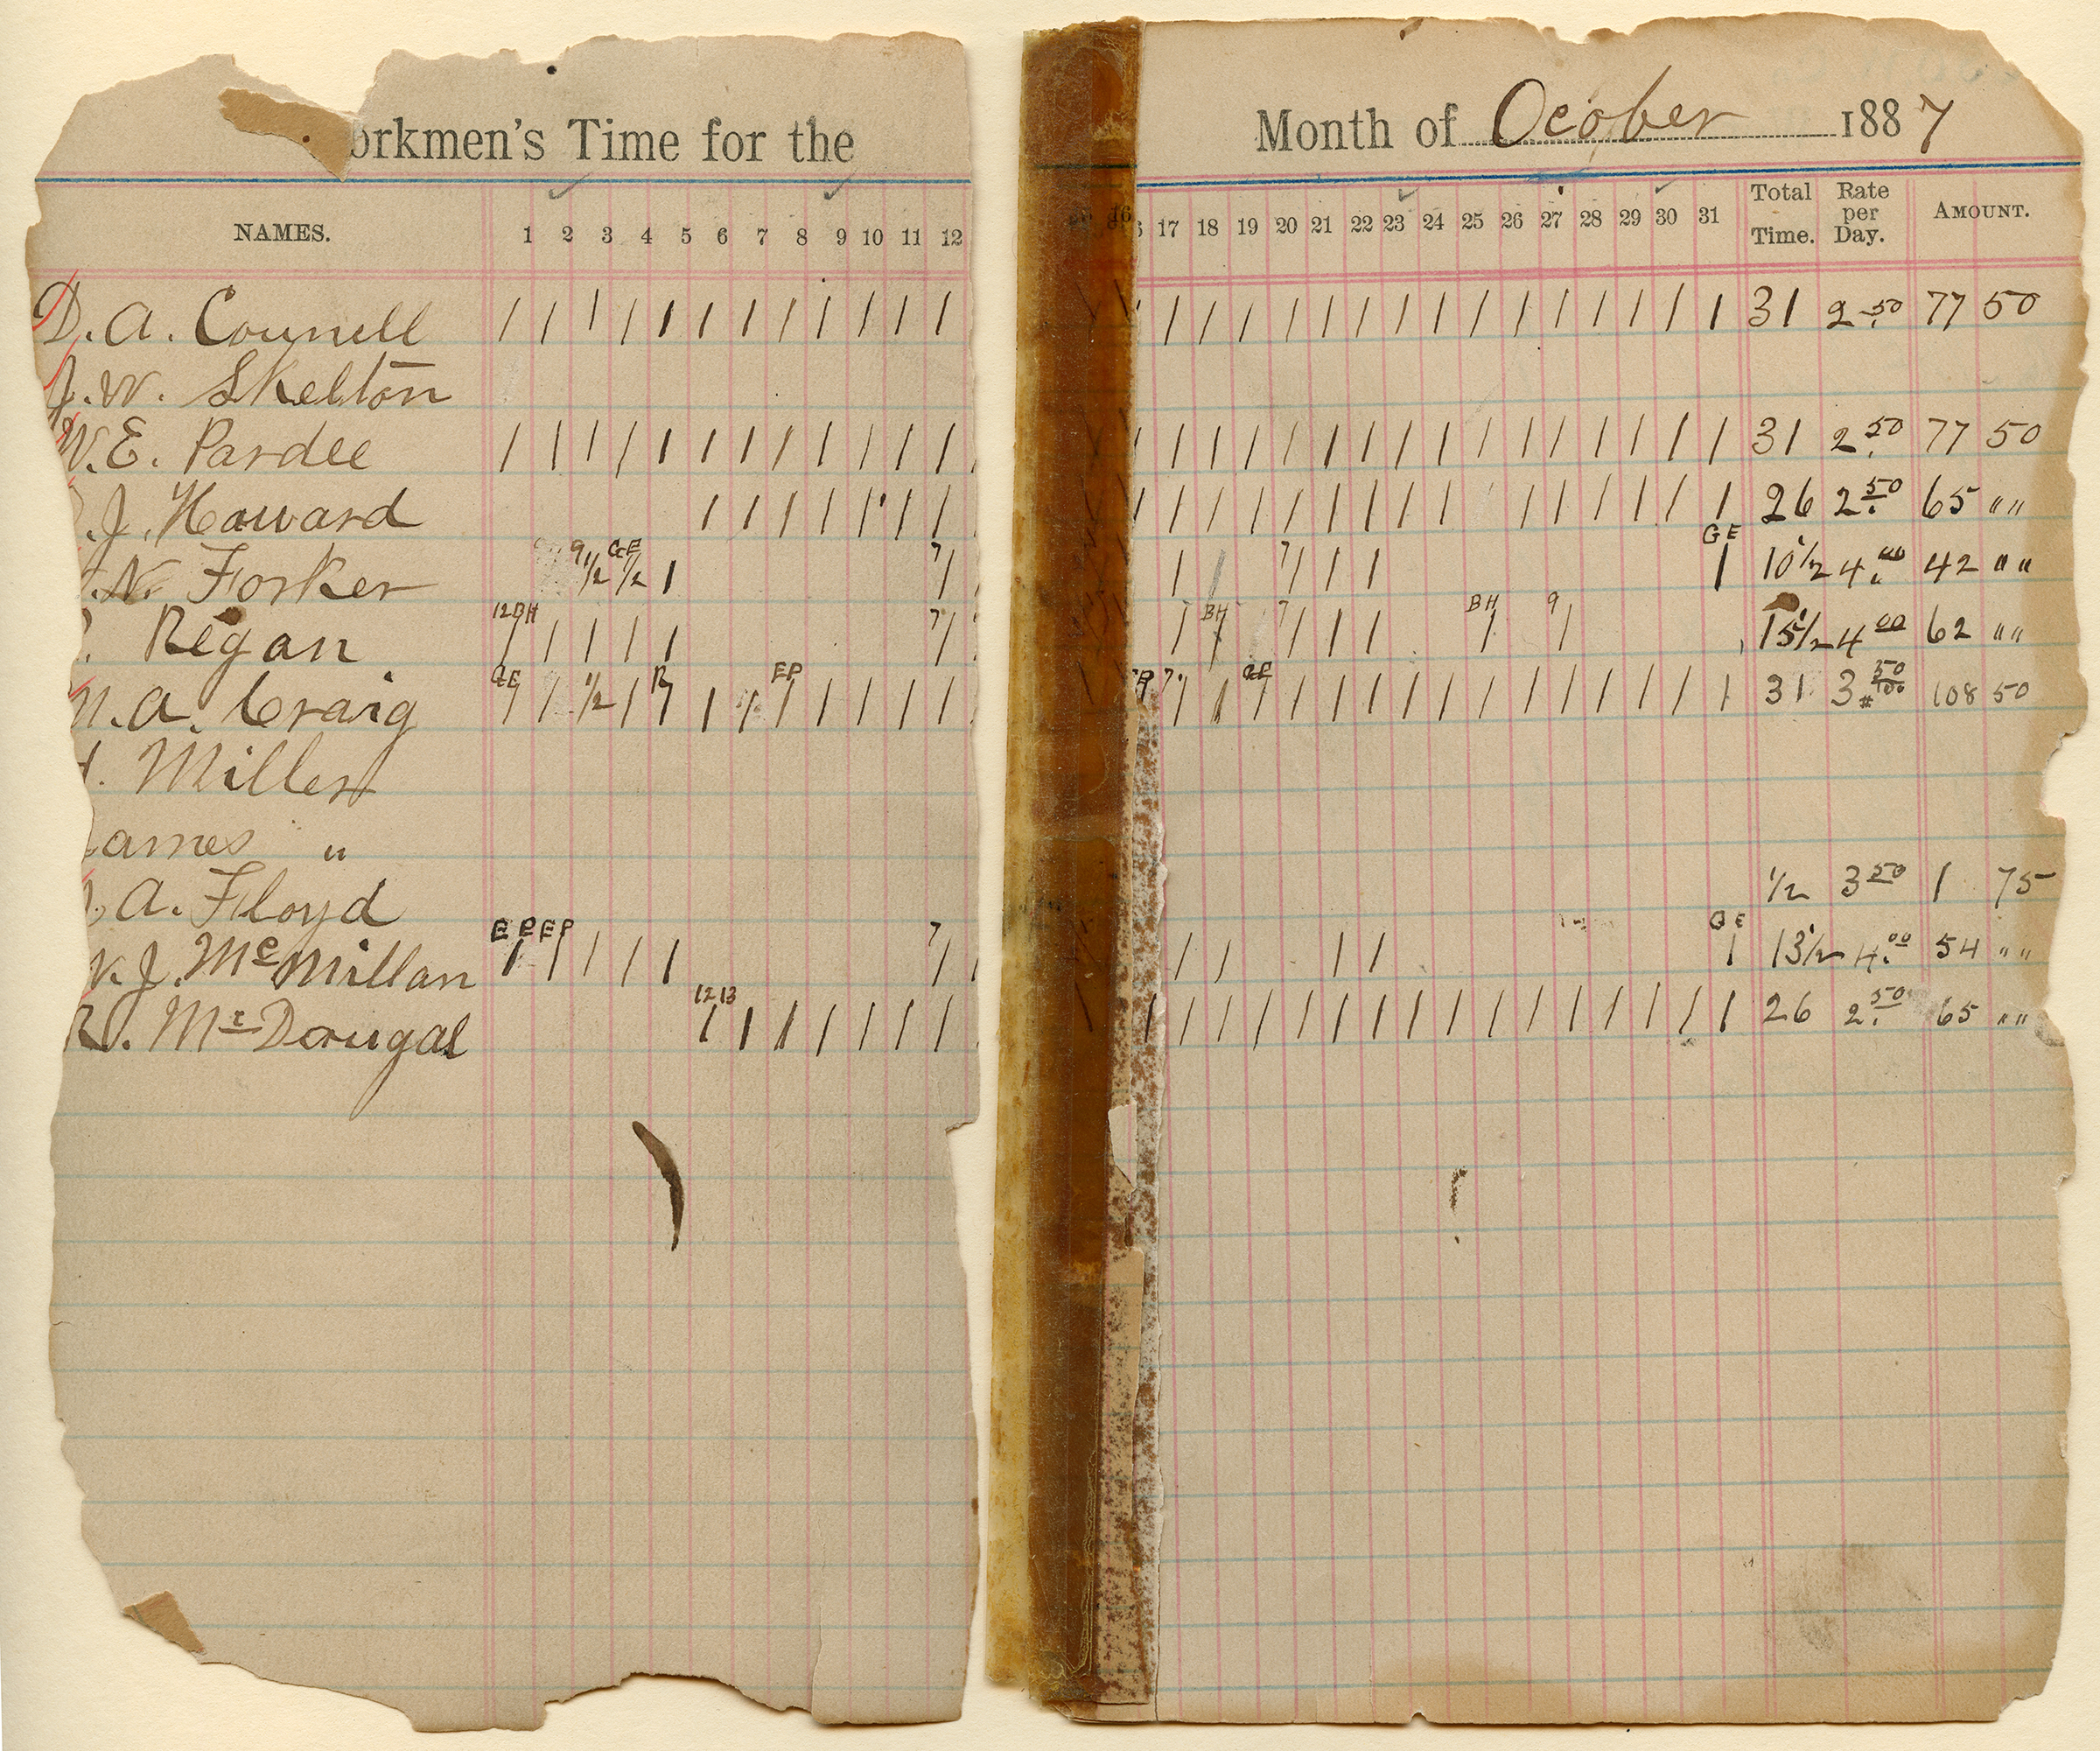 orkmen's Time for the Month of Ocober 1887
NAMES. 1 2 3 4 5 6 7 8 9 10 11 12 16 17 18 19 20 21 22 23 24 25 26 27 28 29 30 31 Total Time. Rate per Day. AMOUNT.
D. A. Connell / / / / / / / / / / / / / / / / / / / / / / / / / / / 31 2.50 77 50
J. W. Skelton
W. E. Pardee / / / / / / / / / / / / / / / / / / / / / / / / / / / 31 2.50 77 50
J. Howard / / / / / / / / / / / / / / / / / / / / / 26 2.50 65 " "
N. Forker 9 1/2 GE 1/2 / 7/ / / 7/ / / GE / 10 1/2 4.00 42 " "
Regan 12 BH / / / / / 7/ / BH / 7/ / / BH / 9/ 15 1/2 4 00 62 " "
N. A. Craig GE / / 1/2 / R/ / / EP / / / / / EP 7/ / GE / / / / / / / / / / / / / 31 3 50/100 108 50
. Miller
ames "
. A. Floyd 1/2 3 50 1 75
. J. McMillan EP / EP / / / / 7/ / / / / GE / 13 1/2 4.00 54 " "
R. McDougal 12 13 / / / / / / / / / / / / / / / / / / / / / / 26 2.50 65 " "